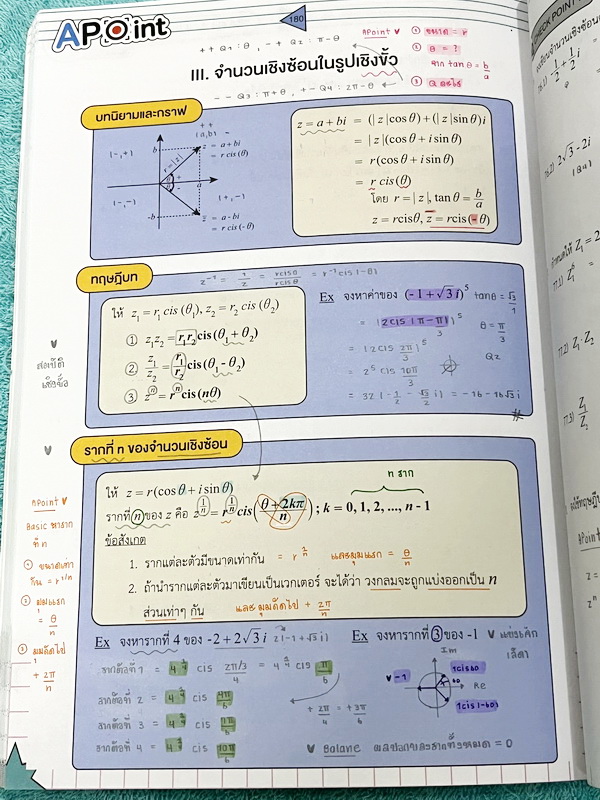 APoint
180
++ Q1 : θ , -+ Q2 : π-θ
-- Q3 : π+θ , +- Q4 : 2π-θ
III. จำนวนเชิงซ้อนในรูปเชิงขั้ว
APoint
① ขนาด = r
② θ = ?
จาก tan θ = b/a
③ Q อะไร
บทนิยามและกราฟ
(-,+)
++
(a,b)
z = a + bi
= r cis (θ)
r = |z|
b
a
-b
(-,-)
(+,-)
z̄ = a - bi
= r cis (-θ)
z = a + bi = (|z|cosθ) + (|z|sinθ)i
= |z|(cosθ + i sinθ)
= r(cosθ + i sinθ)
= r cis(θ)
โดย r = |z|, tanθ = b/a
z = rcisθ, z̄ = rcis(-θ)
ทฤษฎีบท
z⁻¹ = 1/z = 1/(rcisθ) = r⁻¹cis(-θ)
ให้ z₁ = r₁ cis (θ₁), z₂ = r₂ cis (θ₂)
① z₁z₂ = r₁r₂cis(θ₁ + θ₂)
② z₁/z₂ = r₁/r₂ cis(θ₁ - θ₂)
③ zⁿ = rⁿcis(nθ)
Ex จงหาค่าของ (-1 + √3 i)⁵
tanθ = √3/1
= (2cis(π-π/3))⁵
θ = π/3
= (2cis 2π/3)⁵
Q2
= 2⁵ cis 10π/3
= 32(-1/2 - √3/2 i) = -16 - 16√3 i
#
รากที่ n ของจำนวนเชิงซ้อน
ให้ z = r(cosθ + i sinθ)
n ราก
รากที่ n ของ z คือ z^(1/n) = r^(1/n) cis((θ + 2kπ)/n) ; k = 0, 1, 2, ..., n - 1
ข้อสังเกต
1. รากแต่ละตัวมีขนาดเท่ากัน = r^(1/n) และมุมแรก = θ/n
2. ถ้านำรากแต่ละตัวมาเขียนเป็นเวกเตอร์ จะได้ว่า วงกลมจะถูกแบ่งออกเป็น n
ส่วนเท่าๆ กัน และมุมถัดไป + 2π/n
APoint
Basic หาราก
ที่ n
① ขนาดเท่า
กัน = r^(1/n)
② มุมแรก
= θ/n
③ มุมถัดไป
+ 2π/n
Ex จงหารากที่ 4 ของ -2 + 2√3 i
2(-1+√3 i)
รากตัวที่ 1 = 4^(1/4) cis (2π/3)/4 = 4^(1/4) cis π/6
รากตัวที่ 2 = 4^(1/4) cis 4π/6
รากตัวที่ 3 = 4^(1/4) cis 7π/6
รากตัวที่ 4 = 4^(1/4) cis 10π/6
+ 2π/4 = + 3π/6
Ex จงหารากที่ 3 ของ -1
Im
1cis60
60
-1
Re
1cis(-60)
Balane ผลบวกของรากทั้งหมด = 0
CHECK POINT
1/2 + 1/2 i
16.2) 2√3 - 2i
กำหนดให้ Z₁ = 2
17.2) Z₁ · Z₂
17.3) Z₁/Z₂
APoint